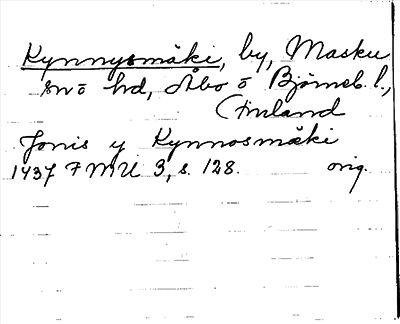 Kynnysmäki, by, Masku
sn o hd, Åbo o Björneb. l.,
Finland
Jonis y Kynnosmäki
1437 FMU 3, s. 128. orig.